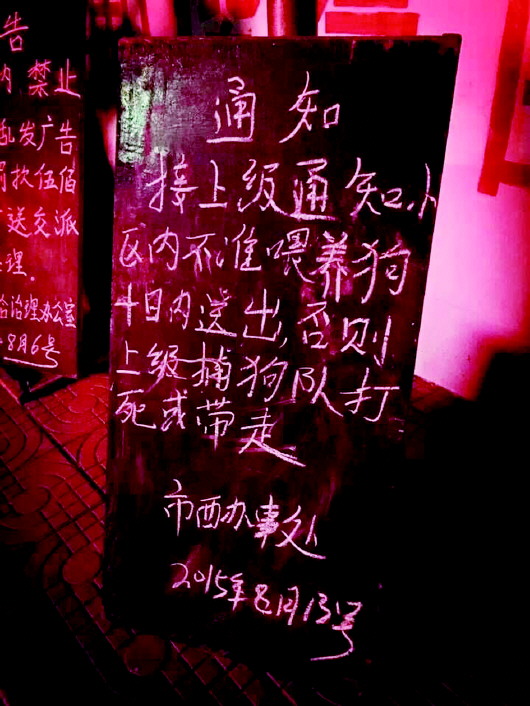 告
内禁止
乱发广告
罚款伍佰
送交派
理。
合治理办公室
8月6号
通知
接上级通知.小
区内不准喂养狗
十日内送出,否则
上级捕狗队打
死或带走
市西办事处
2015年8月13号